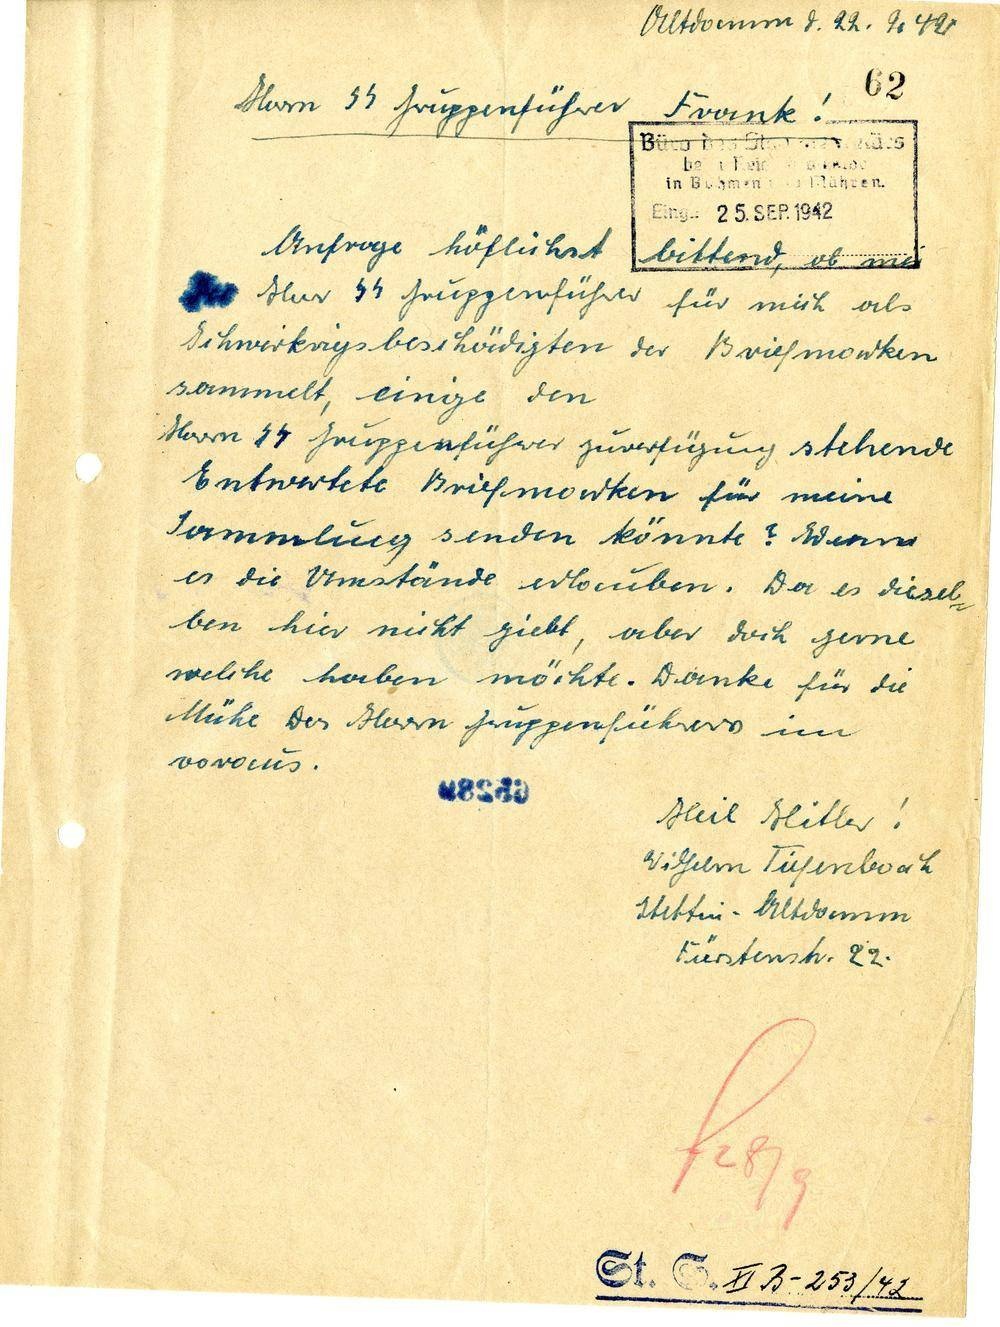 Altdamm d. 22. 9. 42
62
Herrn SS Gruppenführer Frank!
Büro des Staatssekretärs
in Böhmen und Mähren.
Eing.: 25. SEP. 1942
Anfrage höflichst bittend, ob mir
Herr SS Gruppenführer für mich als
Schwerkrigsbeschädigten der Briefmarken
sammelt, einige den
Herrn SS Gruppenführer zuverfügung stehende
Entwertete Briefmarken für meine
Sammlung senden könnte? Wenn
es die Umstände erlauben. Da es diesel=
ben hier nicht giebt, aber doch gerne
welche haben möchte. Danke für die
Mühe Des Herrn Gruppenführers im
voraus.
Heil Hitler!
Wilhelm Tiefenbach
Stettin - Altdamm
Fürstenstr. 22.
28/9
St. S. XI B-253/42